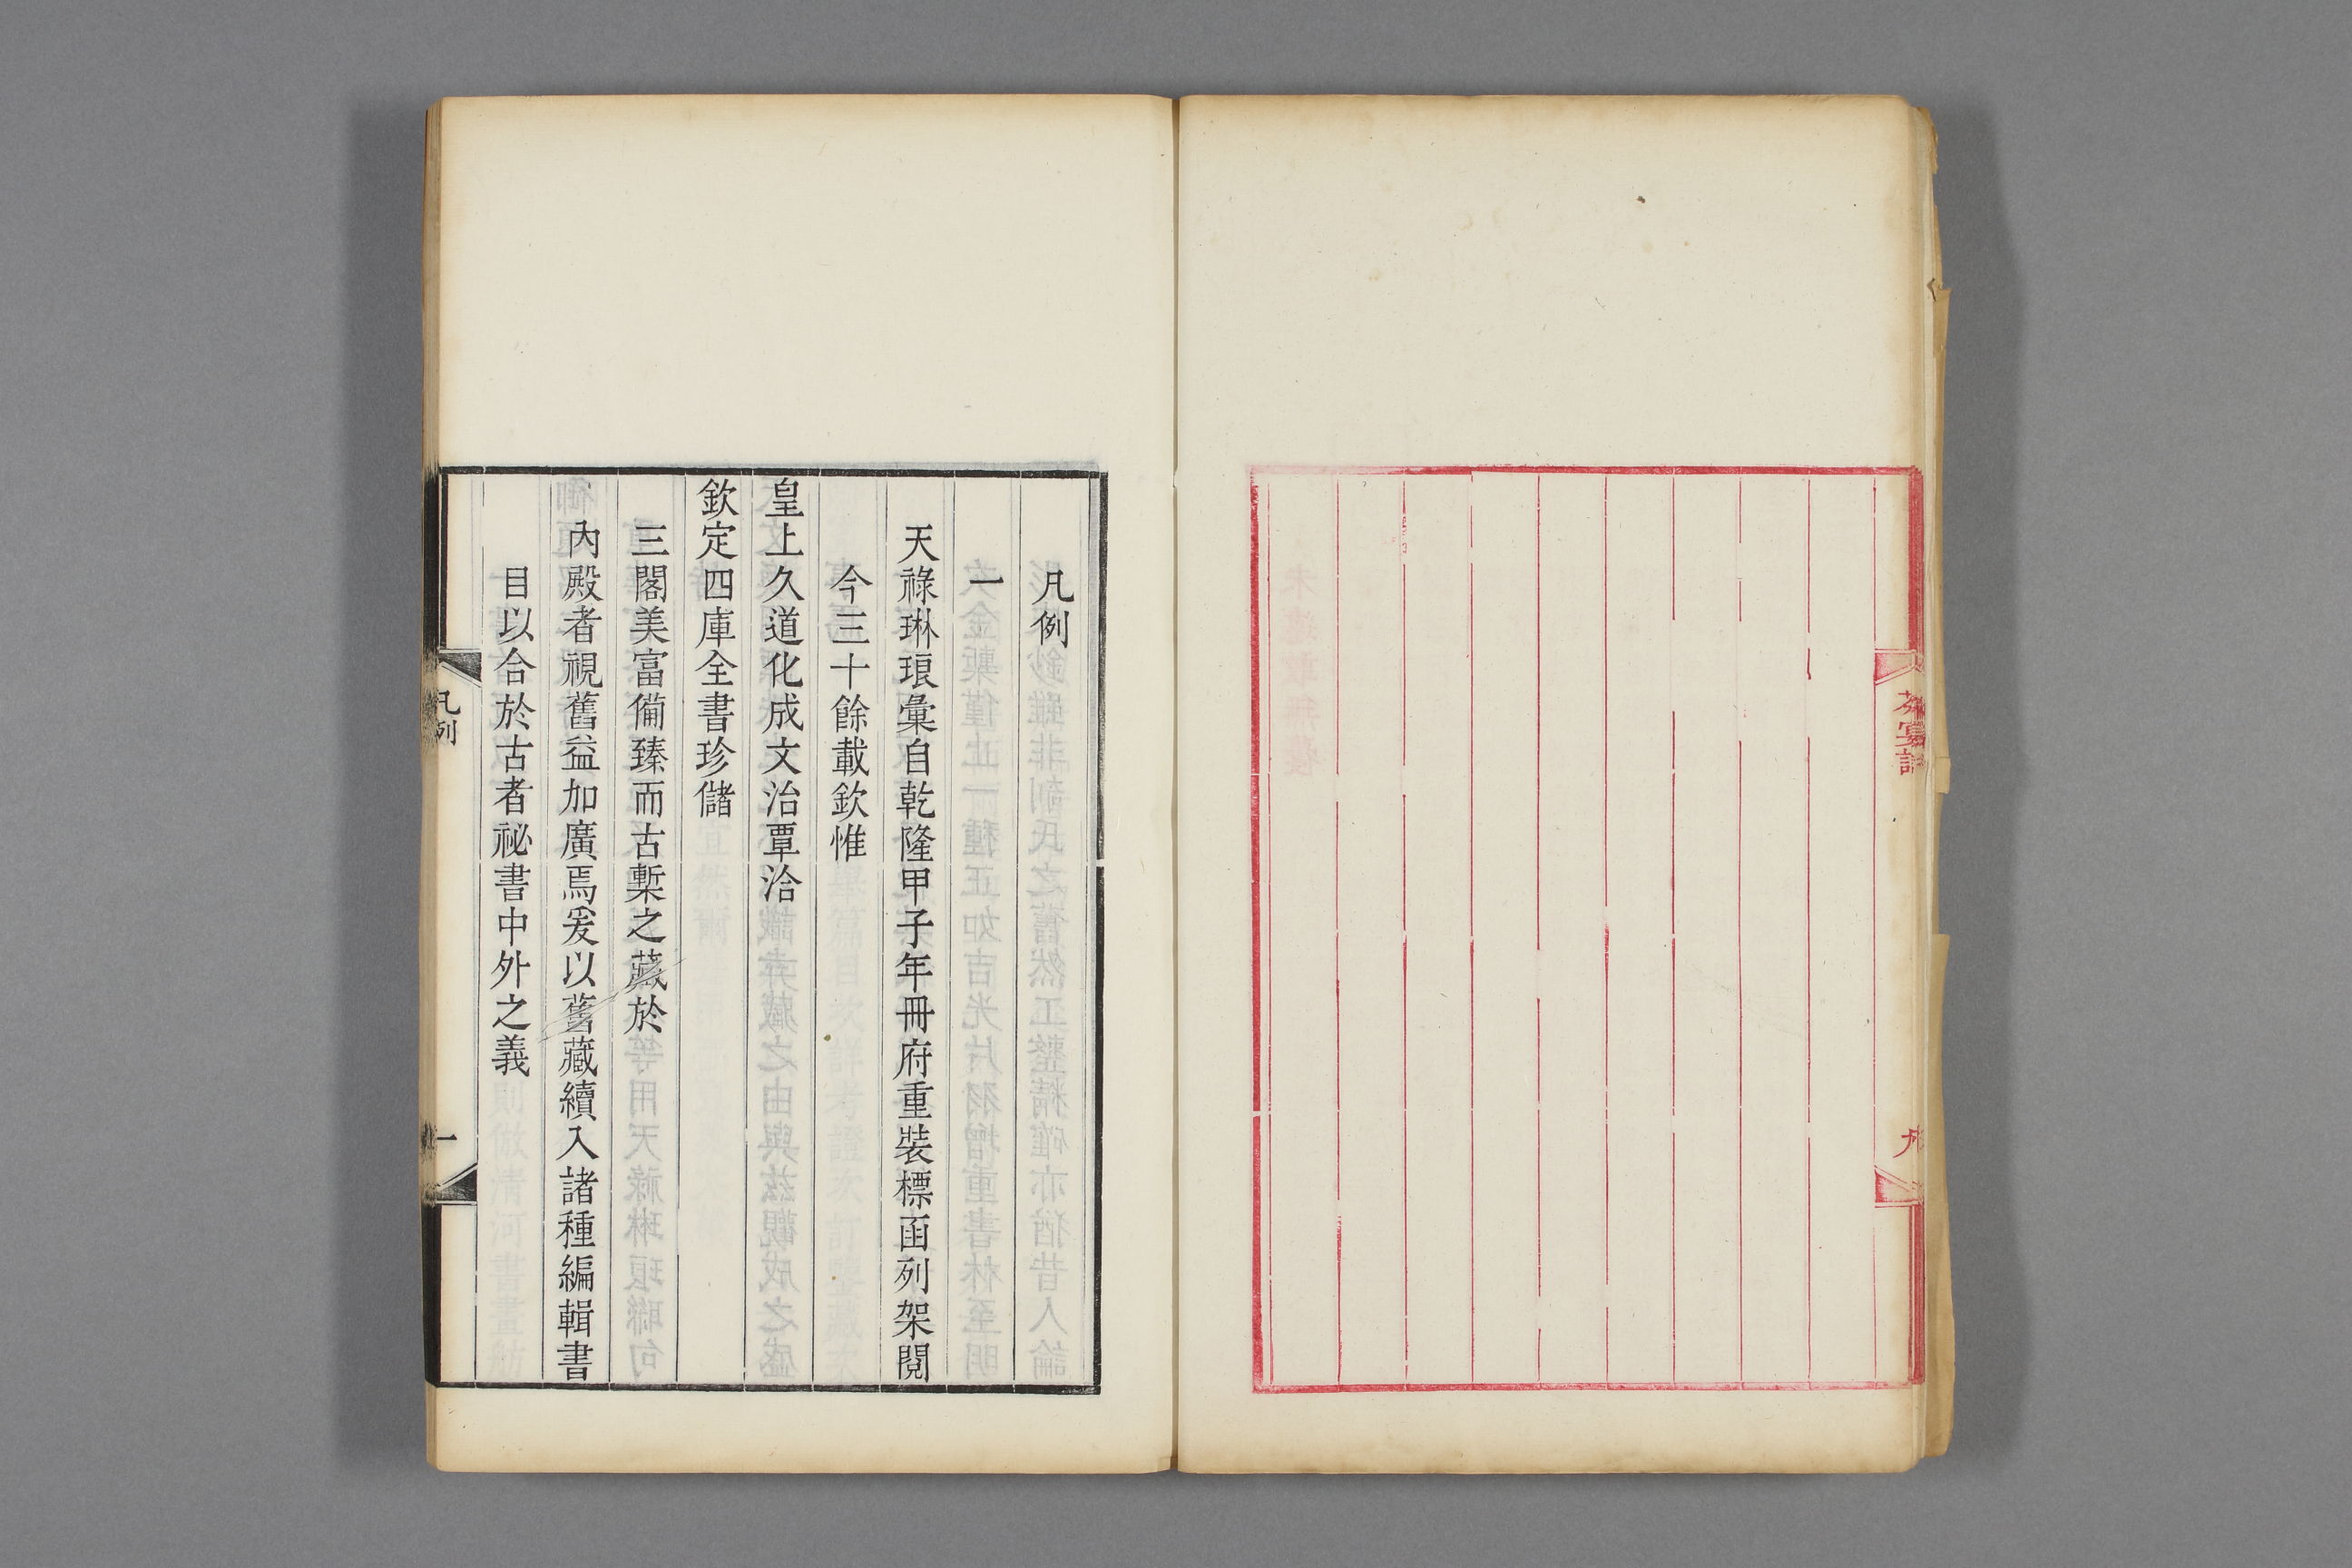 凡例
一
天祿琳琅彙自乾隆甲子年冊府重裝標函列架閱
今三十餘載欽惟
皇上久道化成文治覃洽
欽定四庫全書珍儲
三閣美富僃臻而古槧之藏於
內殿者視舊益加廣焉爰以舊藏續入諸種編輯書
目以合於古者祕書中外之義
凡例
一
茶宴詩
九